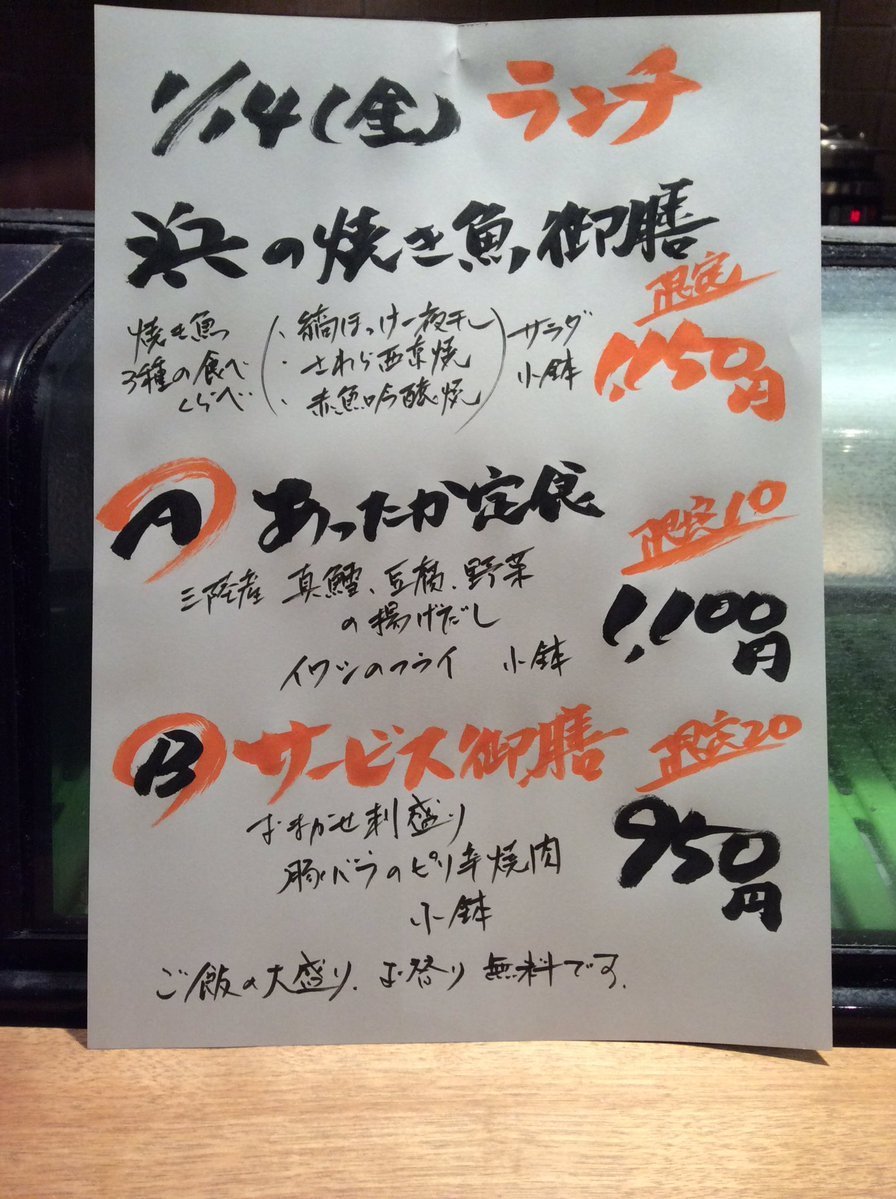 1/14(金) ランチ
浜の焼き魚御膳
限定
焼き魚
3種の食べ
くらべ
・縞ほっけ一夜干し
・さわら西京焼
・赤魚吟醸焼
サラダ
小鉢
1,150円
A あったか定食
限定10
三陸産 真鱈、豆腐、野菜
の揚げだし
イワシのフライ 小鉢
1,100円
B サービス御膳
限定20
おまかせ刺盛り
豚バラのピリ辛焼肉
小鉢
950円
ご飯の大盛り、お替り 無料です。